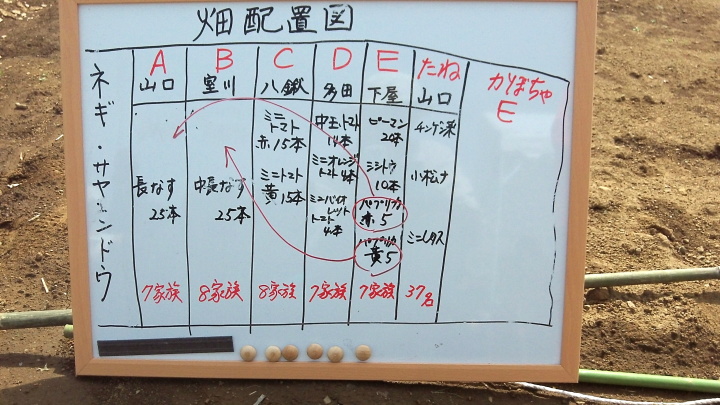 畑配置図
ネギ・サヤエンドウ
A
山口
長なす
25本
7家族
B
室川
中長なす
25本
8家族
C
八鍬
ミニ
トマト
赤15本
ミニトマト
黄15本
8家族
D
多田
中玉トマト
ミニオレンジ
トマト4本
ミニバイオ
レット
トマト
4本
7家族
E
下屋
ピーマン
20本
シシトウ
10本
パプリカ
赤5
パプリカ
黄5
7家族
たね
山口
チンゲン菜
小松菜
ミニレタス
37名
かぼちゃ
E